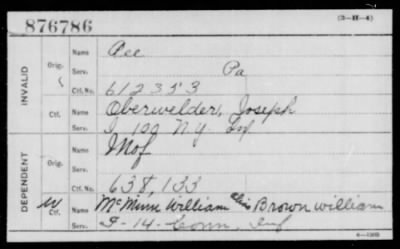 876786 (3-H-4)
INVALID
Orig. Name Acc
Serv. Pa
Ctf. No. 612353
Ctf. Name Oberwelder, Joseph
Serv. I 100 N.Y. Inf
DEPENDENT
Orig. Name Mof
Serv.
Ctf. No. 638,133
W Ctf. Name McMinn William alias Brown William
Serv. I-14-Conn. Inf